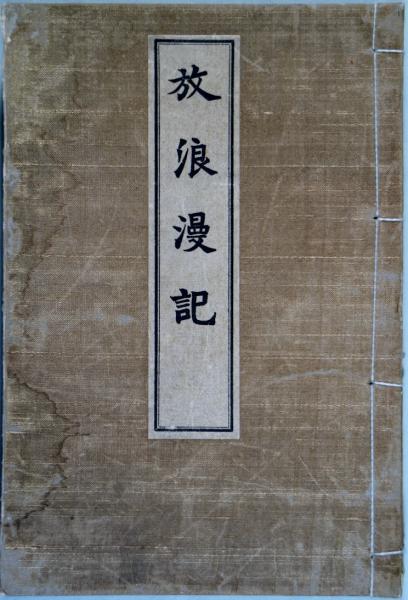 放浪漫記